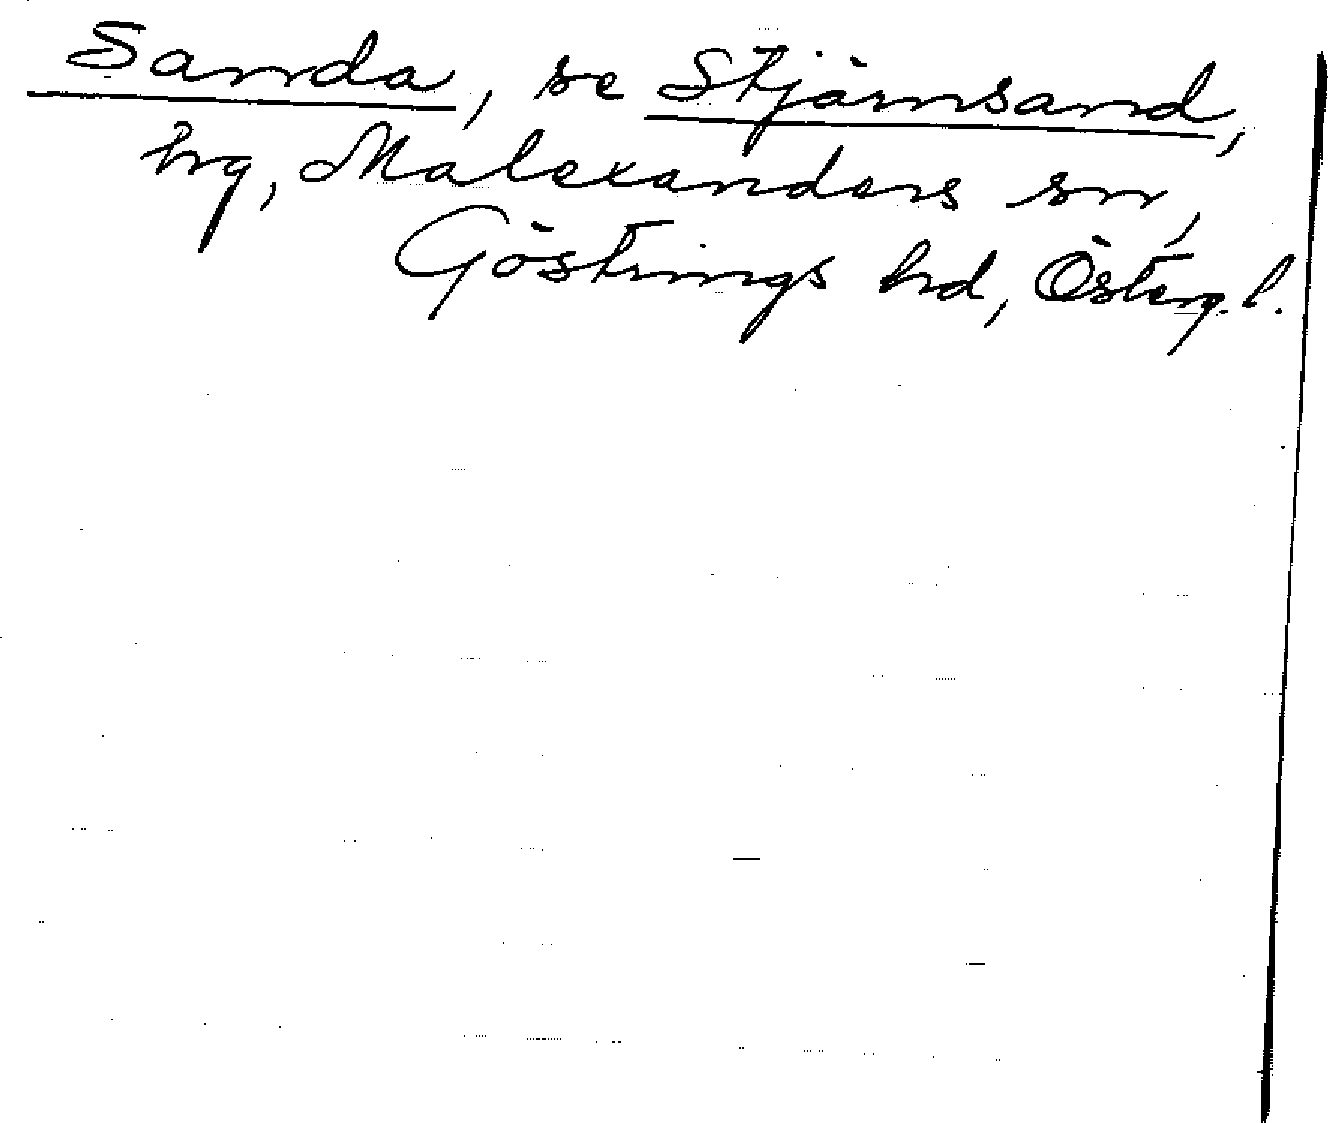 Sanda, se Stjärnsand,
hg, Malexanders sn,
Göstrings hd, Österg.l.